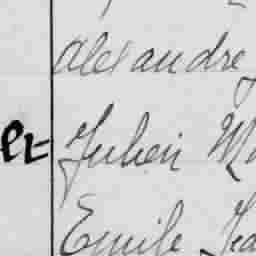 Alexandre
er= Julien
Emile